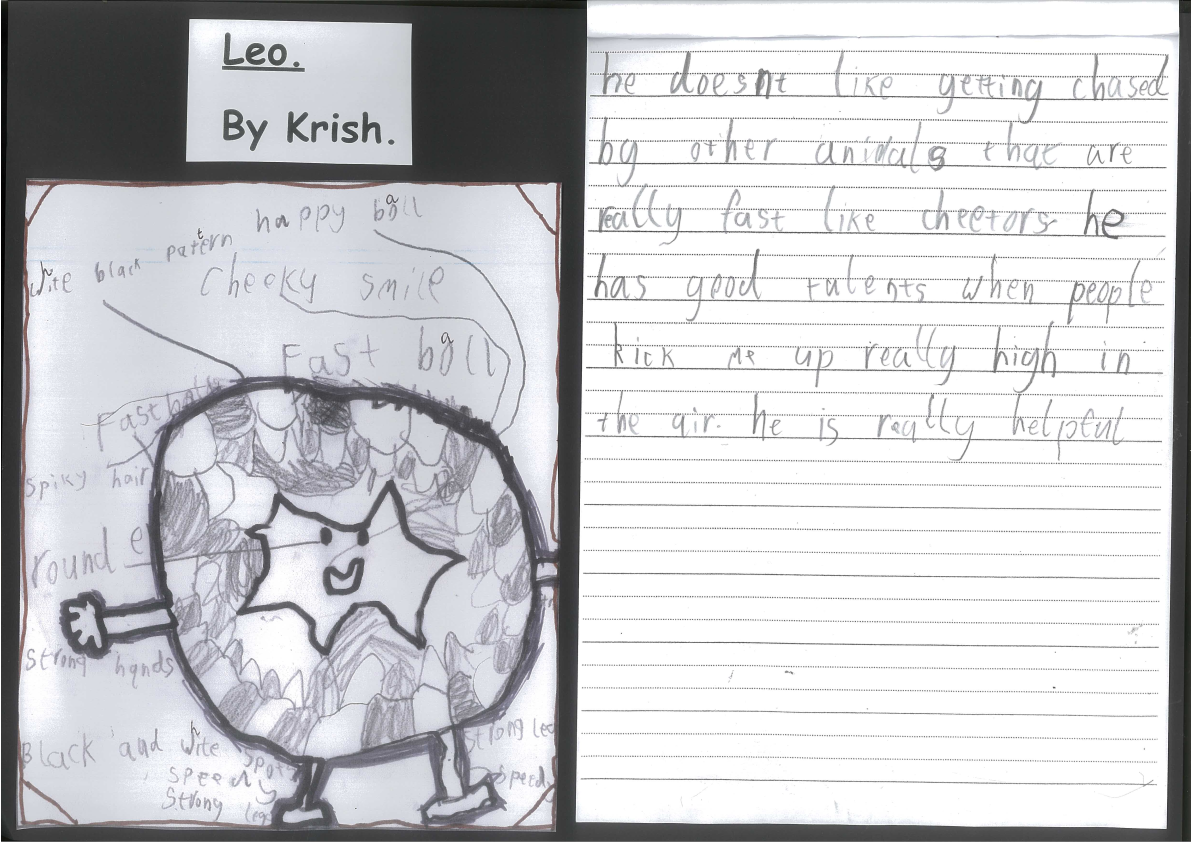 Leo.
By Krish.
happy ball
white black pattern
Cheeky smile
Fast ball
Fast ball
spiky hair
round e
strong hands
Black and white spots
speedy
strong legs
strong leg
speedy
he doesnt like getting chased
by other animals that are
really fast like cheetors he
has good talents when people
kick me up really high in
the air. he is really helpful